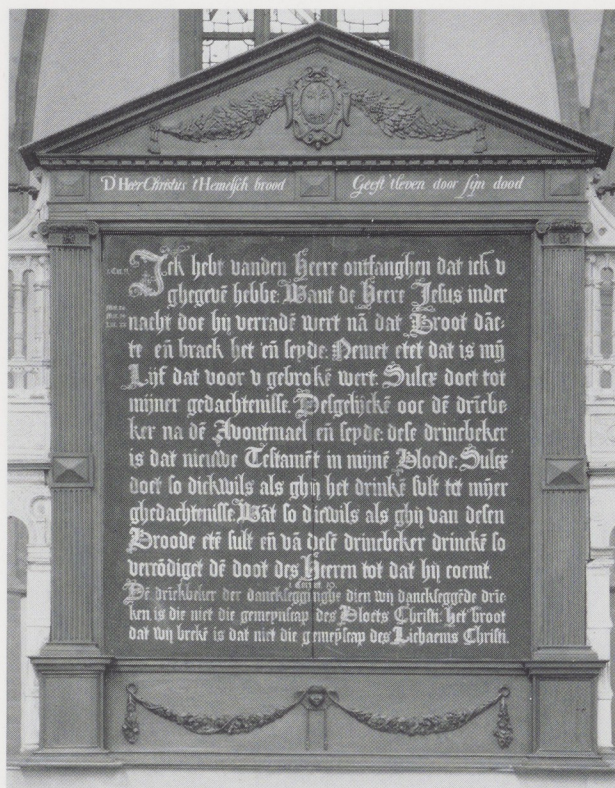 D'Heer Christus t'Hemelsch brood
Geeft 'tleven door syn dood
Ick hebt vanden Heere ontfanghen dat ick v
ghegevē hebbe: Want de Heere Jesus inder
nacht doe hij verradē wert nā dat Broot dāc-
te eñ brack het eñ seyde: Nemet etet dat is mȳ
Lijf dat voor v gebrokē wert: Sulcx doet tot
mijner gedachtenisse. Desgelijckē ooc dē drīcbe-
ker na dē Avontmael eñ seyde: dese drincbeker
is dat nieuwe Testamēt in mijnē Bloede. Sulcx
doet so dickwils als ghij het drinkē sult tot mȳer
ghedachtenisse Wāt so dicwils als ghij van desen
Broode etē sult eñ vā desē drincbeker drinckē so
vercōdiget dē doot des Heeren tot dat hij coemt.
Dē drīckbeker der danckseggīnghe dien wij danckseggēde drīc-
ken is die niet die gemeynscap des Bloets Christi: het broot
dat wij brekē is dat niet die gemeȳscap des Lichaems Christi.